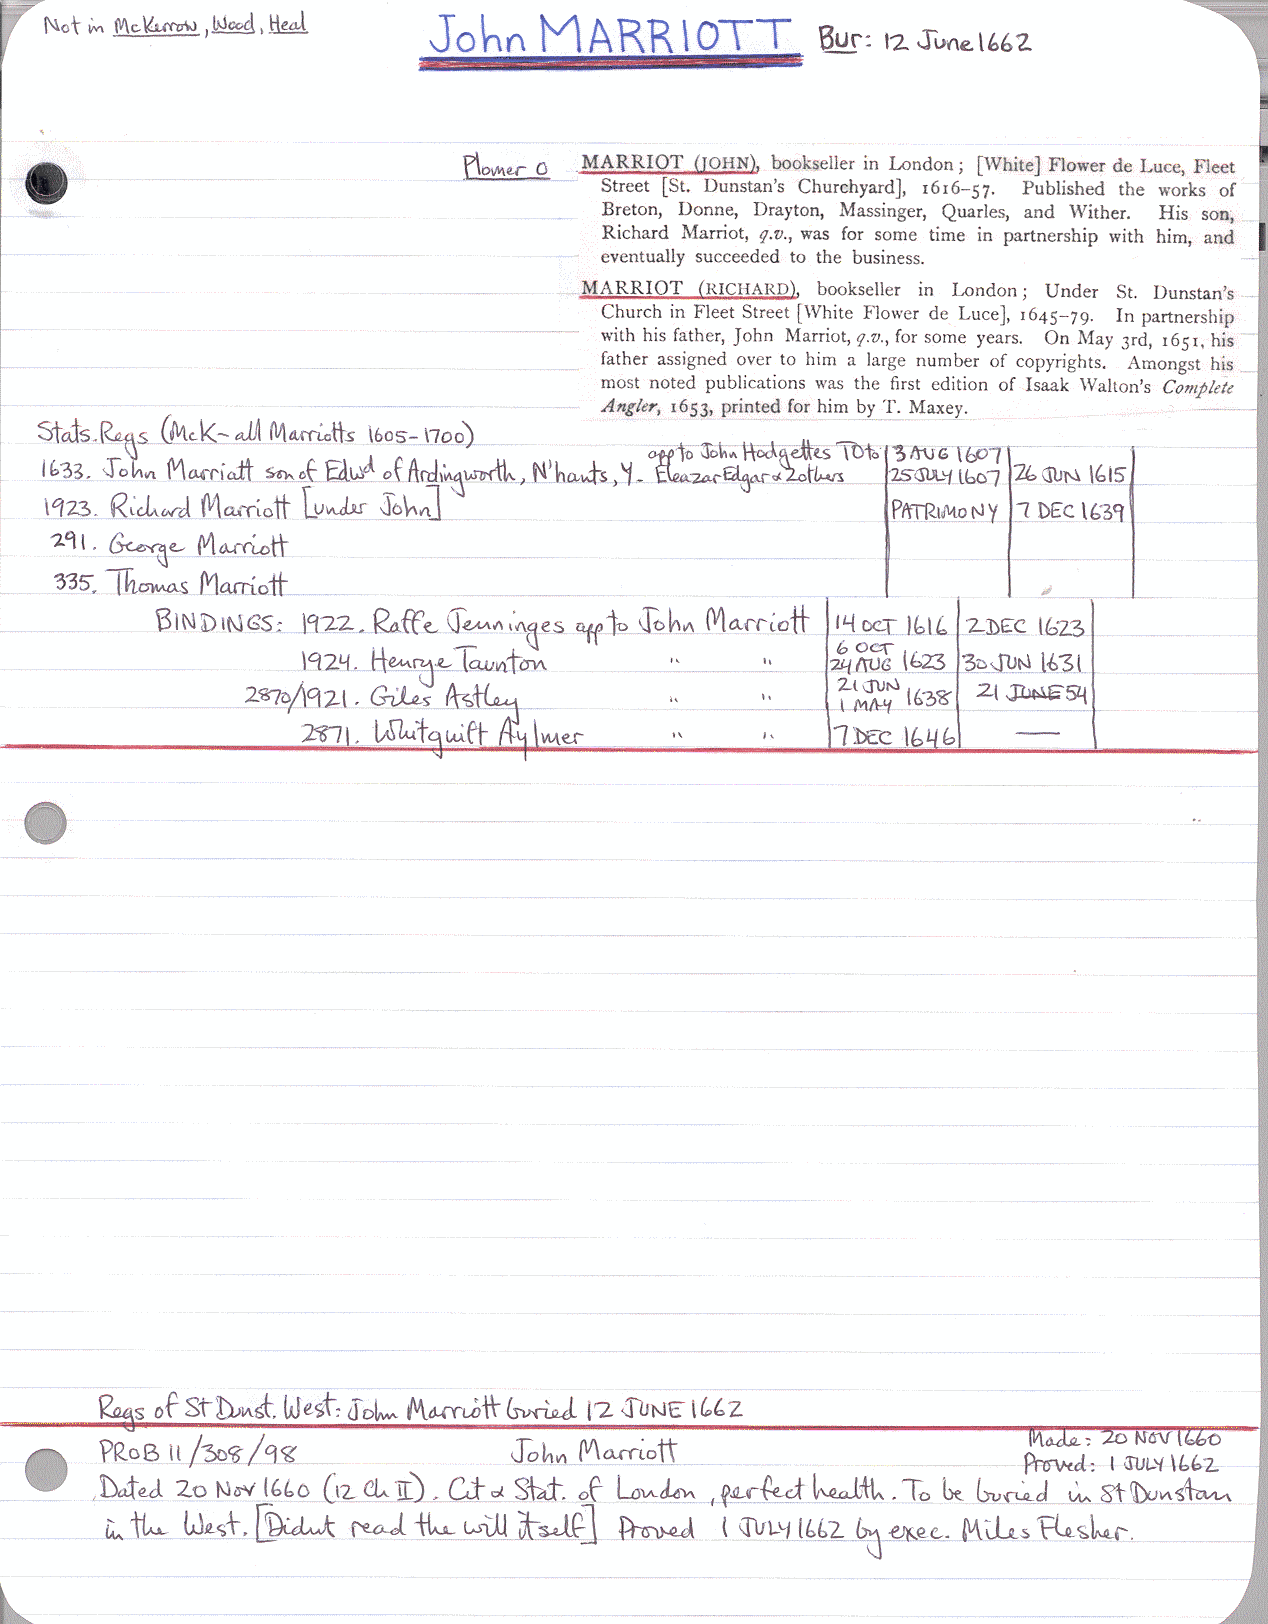 Not in McKerrow, Wood, Heal
John MARRIOTT Bur: 12 June 1662
Plomer O
MARRIOT (JOHN), bookseller in London; [White] Flower de Luce, Fleet
Street [St. Dunstan's Churchyard], 1616–57. Published the works of
Breton, Donne, Drayton, Massinger, Quarles, and Wither. His son,
Richard Marriot, q.v., was for some time in partnership with him, and
eventually succeeded to the business.
MARRIOT (RICHARD), bookseller in London; Under St. Dunstan's
Church in Fleet Street [White Flower de Luce], 1645–79. In partnership
with his father, John Marriot, q.v., for some years. On May 3rd, 1651, his
father assigned over to him a large number of copyrights. Amongst his
most noted publications was the first edition of Isaak Walton's Complete
Angler, 1653, printed for him by T. Maxey.
Stats. Regs (McK – all Marriotts 1605–1700)
app to John Hodgettes TO to 3 AUG 1607
1633. John Marriott son of Edwd of Ardingworth, N'hants, Y – Eleazar Edgar & 2 others 25 JULY 1607 26 JUN 1615
1923. Richard Marriott [under John] PATRIMONY 7 DEC 1639
291. George Marriott
335. Thomas Marriott
BINDINGS: 1922. Raffe Jenninges app to John Marriott 14 OCT 1616 2 DEC 1623
6 OCT
1924. Henrye Taunton " " 24 AUG 1623 30 JUN 1631
21 JUN
2870/1921. Giles Astley " " 1 MAY 1638 21 JUNE 54
2871. Whitguift Aylmer " " 7 DEC 1646 —
Regs of St Dunst. West: John Marriott buried 12 JUNE 1662
PROB 11/308/98 John Marriott Made: 20 NOV 1660
Proved: 1 JULY 1662
Dated 20 Nov 1660 (12 Ch II). Cit & Stat. of London, perfect health. To be buried in St Dunstan
in the West. [Didnt read the will itself] Proved 1 JULY 1662 by exec. Miles Flesher.